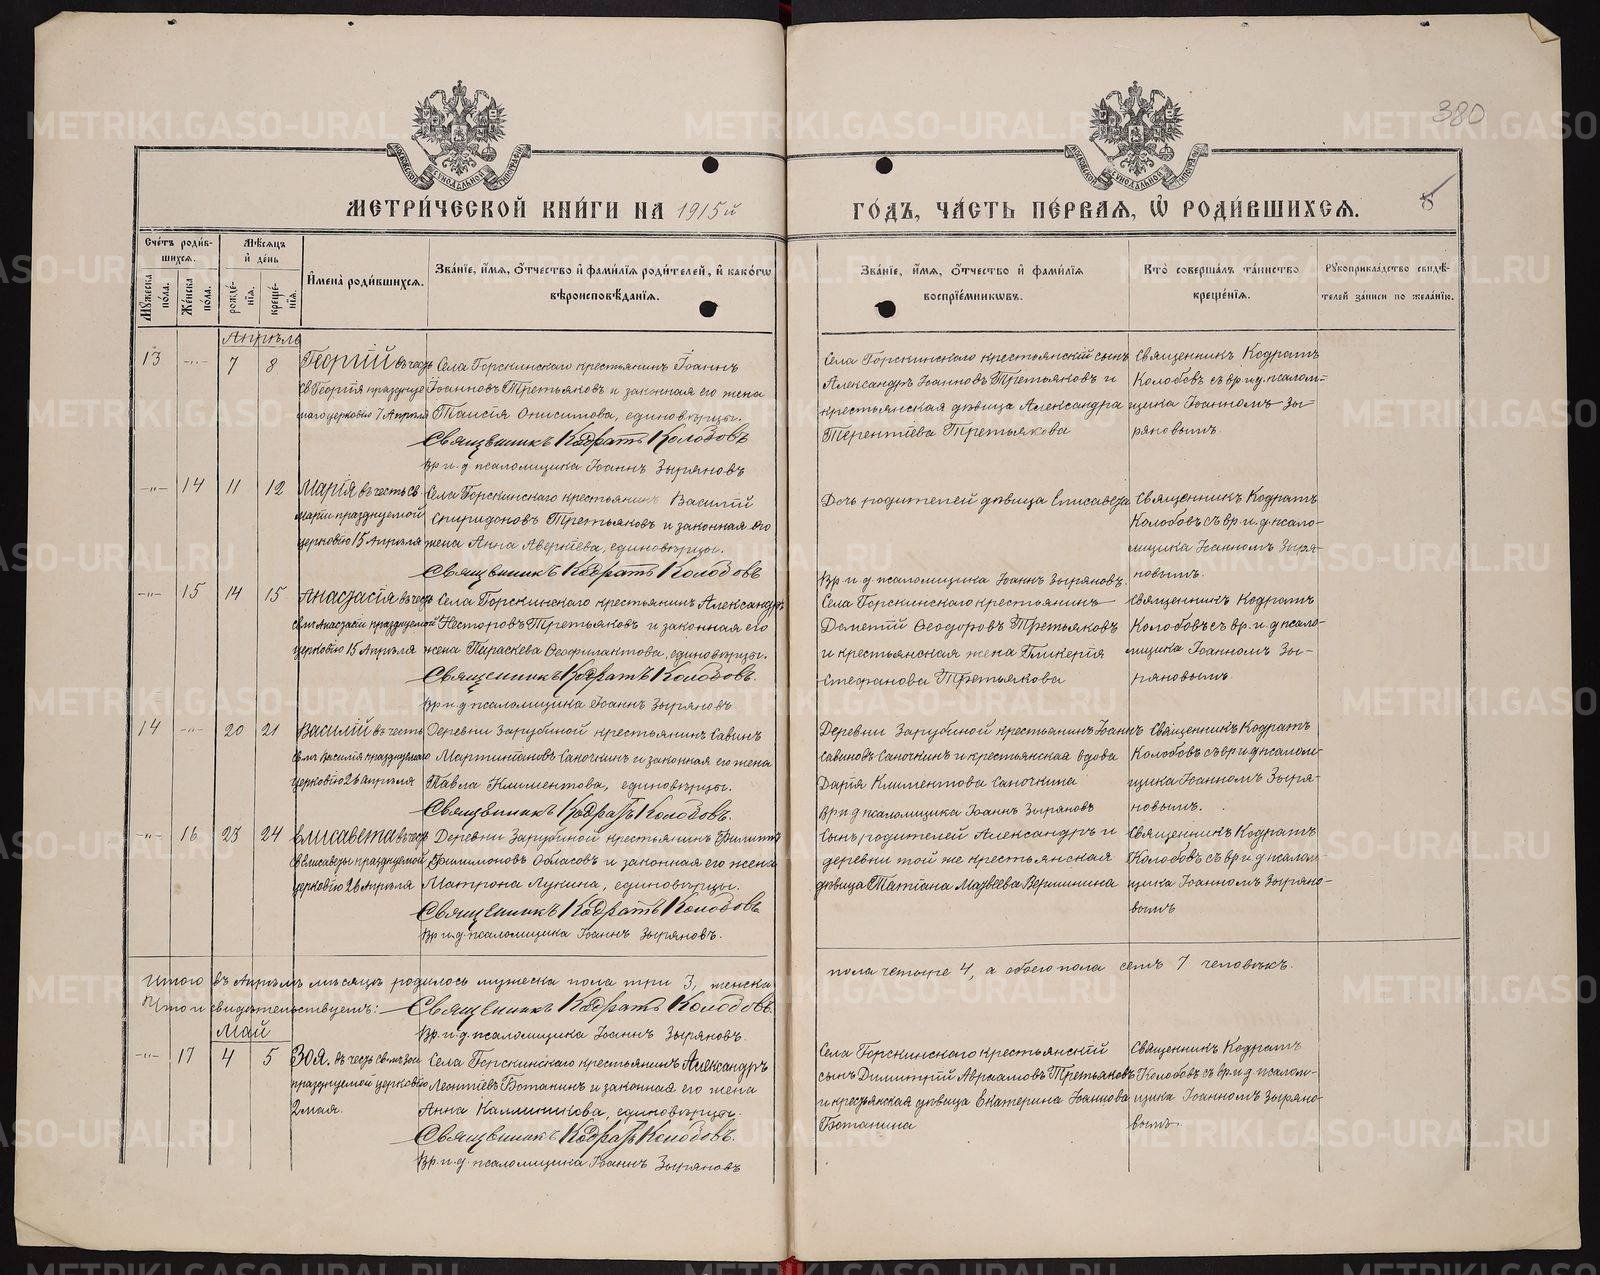 380
МЕТРИ́ЧЕСКОЙ КНИ́ГИ НА 1915й
ГО́ДЪ, ЧА́СТЬ ПЕ́РВАЯ, Ѡ҆ РОДИ́ВШИХСЯ.
Сче́тъ роди́в-
шихся.
Мѣ́сяцъ
и҆ де́нь
Му́жеска
по́ла.
Же́нска
по́ла.
рожде́-
нїя.
креще́-
нїя.
И҆мена̀ роди́вшихся.
Зва́нїе, и҆́мя, о҆́тчество и҆ фами́лїя роди́телей, и҆ како́гѡ
вѣроисповѣ́данїя.
Зва́нїе, и҆́мя, о҆́тчество и҆ фами́лїя
воспрїе́мникѡвъ.
Кто̀ соверша́лъ та́инство
креще́нїя.
Рукоприкла́дство свидѣ́-
телей за́писи по жела́нїю.
Апрѣль
13 -„- 7 8
Георгій въ честь
св Георгія празднуе
маго церковію 7 Апрѣля
Села Горскинскаго крестьянинъ Іоаннъ
Іоанновъ Третьяковъ и законная его жена
Таисія Онисимова, единовѣрцы.
Священникъ Кодратъ Колобовъ
Вр и. д псаломщика Іоаннъ Зыряновъ
Села Горскинскаго крестьянскій сынъ
Александръ Іоанновъ Третьяковъ и
крестьянская дѣвица Александра
Терентіева Третьякова
Священникъ Кодратъ
Колобовъ съ вр и д. псалом-
щика Іоанномъ Зы-
ряновымъ.
-„- 14 11 12
Марія въ честь св
Маріи празднуемой
церковію 15 Апрѣля
Села Горскинскаго крестьянинъ Василій
Спиридоновъ Третьяковъ и законная его
жена Анна Аверкіева, единовѣрцы.
Священникъ Кодратъ Колобовъ
Дочь родителей дѣвица Елисавета
Вр и д псаломщика Іоаннъ Зыряновъ.
Священникъ Кодратъ
Колобовъ съ вр. и. д. псало-
мщика Іоанномъ Зыря-
новымъ.
-„- 15 14 15
Анастасія въ честь
св мч Анастасіи празднуемой
церковію 15 Апрѣля
Села Горскинскаго крестьянинъ Александръ
Несторовъ Третьяковъ и законная его
жена Параскева Ѳеофилактова, единовѣрцы.
Священникъ Кодратъ Колобовъ.
Вр и д псаломщика Іоаннъ Зыряновъ
Села Горскинскаго крестьянинъ
Дометій Ѳеодоровъ Третьяковъ
и крестьянская жена Гликерія
Стефанова Третьякова
Священникъ Кодратъ
Колобовъ съ вр. и. д псало-
мщика Іоанномъ Зы-
ряновымъ.
14 -„- 20 21
Василій въ честь
св мч Василія празднуемаго
церковію 26 Апрѣля
Деревни Зарубиной крестьянинъ Савинъ
Мартиніановъ Саночкинъ и законная его жена
Павла Климентова, единовѣрцы.
Священникъ Кодратъ Колобовъ.
Деревни Зарубиной крестьянинъ Іоаннъ
Савиновъ Саночкинъ и крестьянская вдова
Дарія Климентова Саночкина
Вр и д псаломщика Іоаннъ Зыряновъ
Священникъ Кодратъ
Колобовъ съ вр и д псалом-
щика Іоанномъ Зыря-
новымъ.
-„- 16 23 24
Елисавета въ честь
св Елисаветы празднуемой
церковію 26 Апрѣля
Деревни Зарубиной крестьянинъ Филиппъ
Филимоновъ Обласовъ и законная его жена
Матрона Лукина, единовѣрцы.
Священникъ Кодратъ Колобовъ
Вр и. д. псаломщика Іоаннъ Зыряновъ.
Сынъ родителей Александръ и
деревни той же крестьянская
дѣвица Татіана Матвеева Вершинина
Священникъ Кодратъ
Колобовъ съ вр и д псалом-
щика Іоанномъ Зыряно-
вымъ
Итого въ Апрѣлѣ мѣсяцѣ родилось мужеска пола три 3, женска
пола четыре 4, а обоего пола семь 7 человѣкъ.
Что и свидѣтельствуемъ: Священникъ Кодратъ Колобовъ.
Вр. и. д. псаломщика Іоаннъ Зыряновъ.
Май
-„- 17 4 5
Зоя. въ честь св мч Зои
празднуемой церковію
2 мая.
Села Горскинскаго крестьянинъ Александръ
Леонтіевъ Ботанинъ и законная его жена
Анна Каллиникова, единовѣрцы.
Священникъ Кодратъ Колобовъ.
Вр. и. д. псаломщика Іоаннъ Зыряновъ
Села Горскинскаго крестьянскій
сынъ Димитрій Авраамовъ Третьяковъ
и крестьянская дѣвица Екатерина Іоаннова
Ботанина
Священникъ Кодратъ
Колобовъ съ вр. и д псалом-
щика Іоанномъ Зыряно-
вымъ.